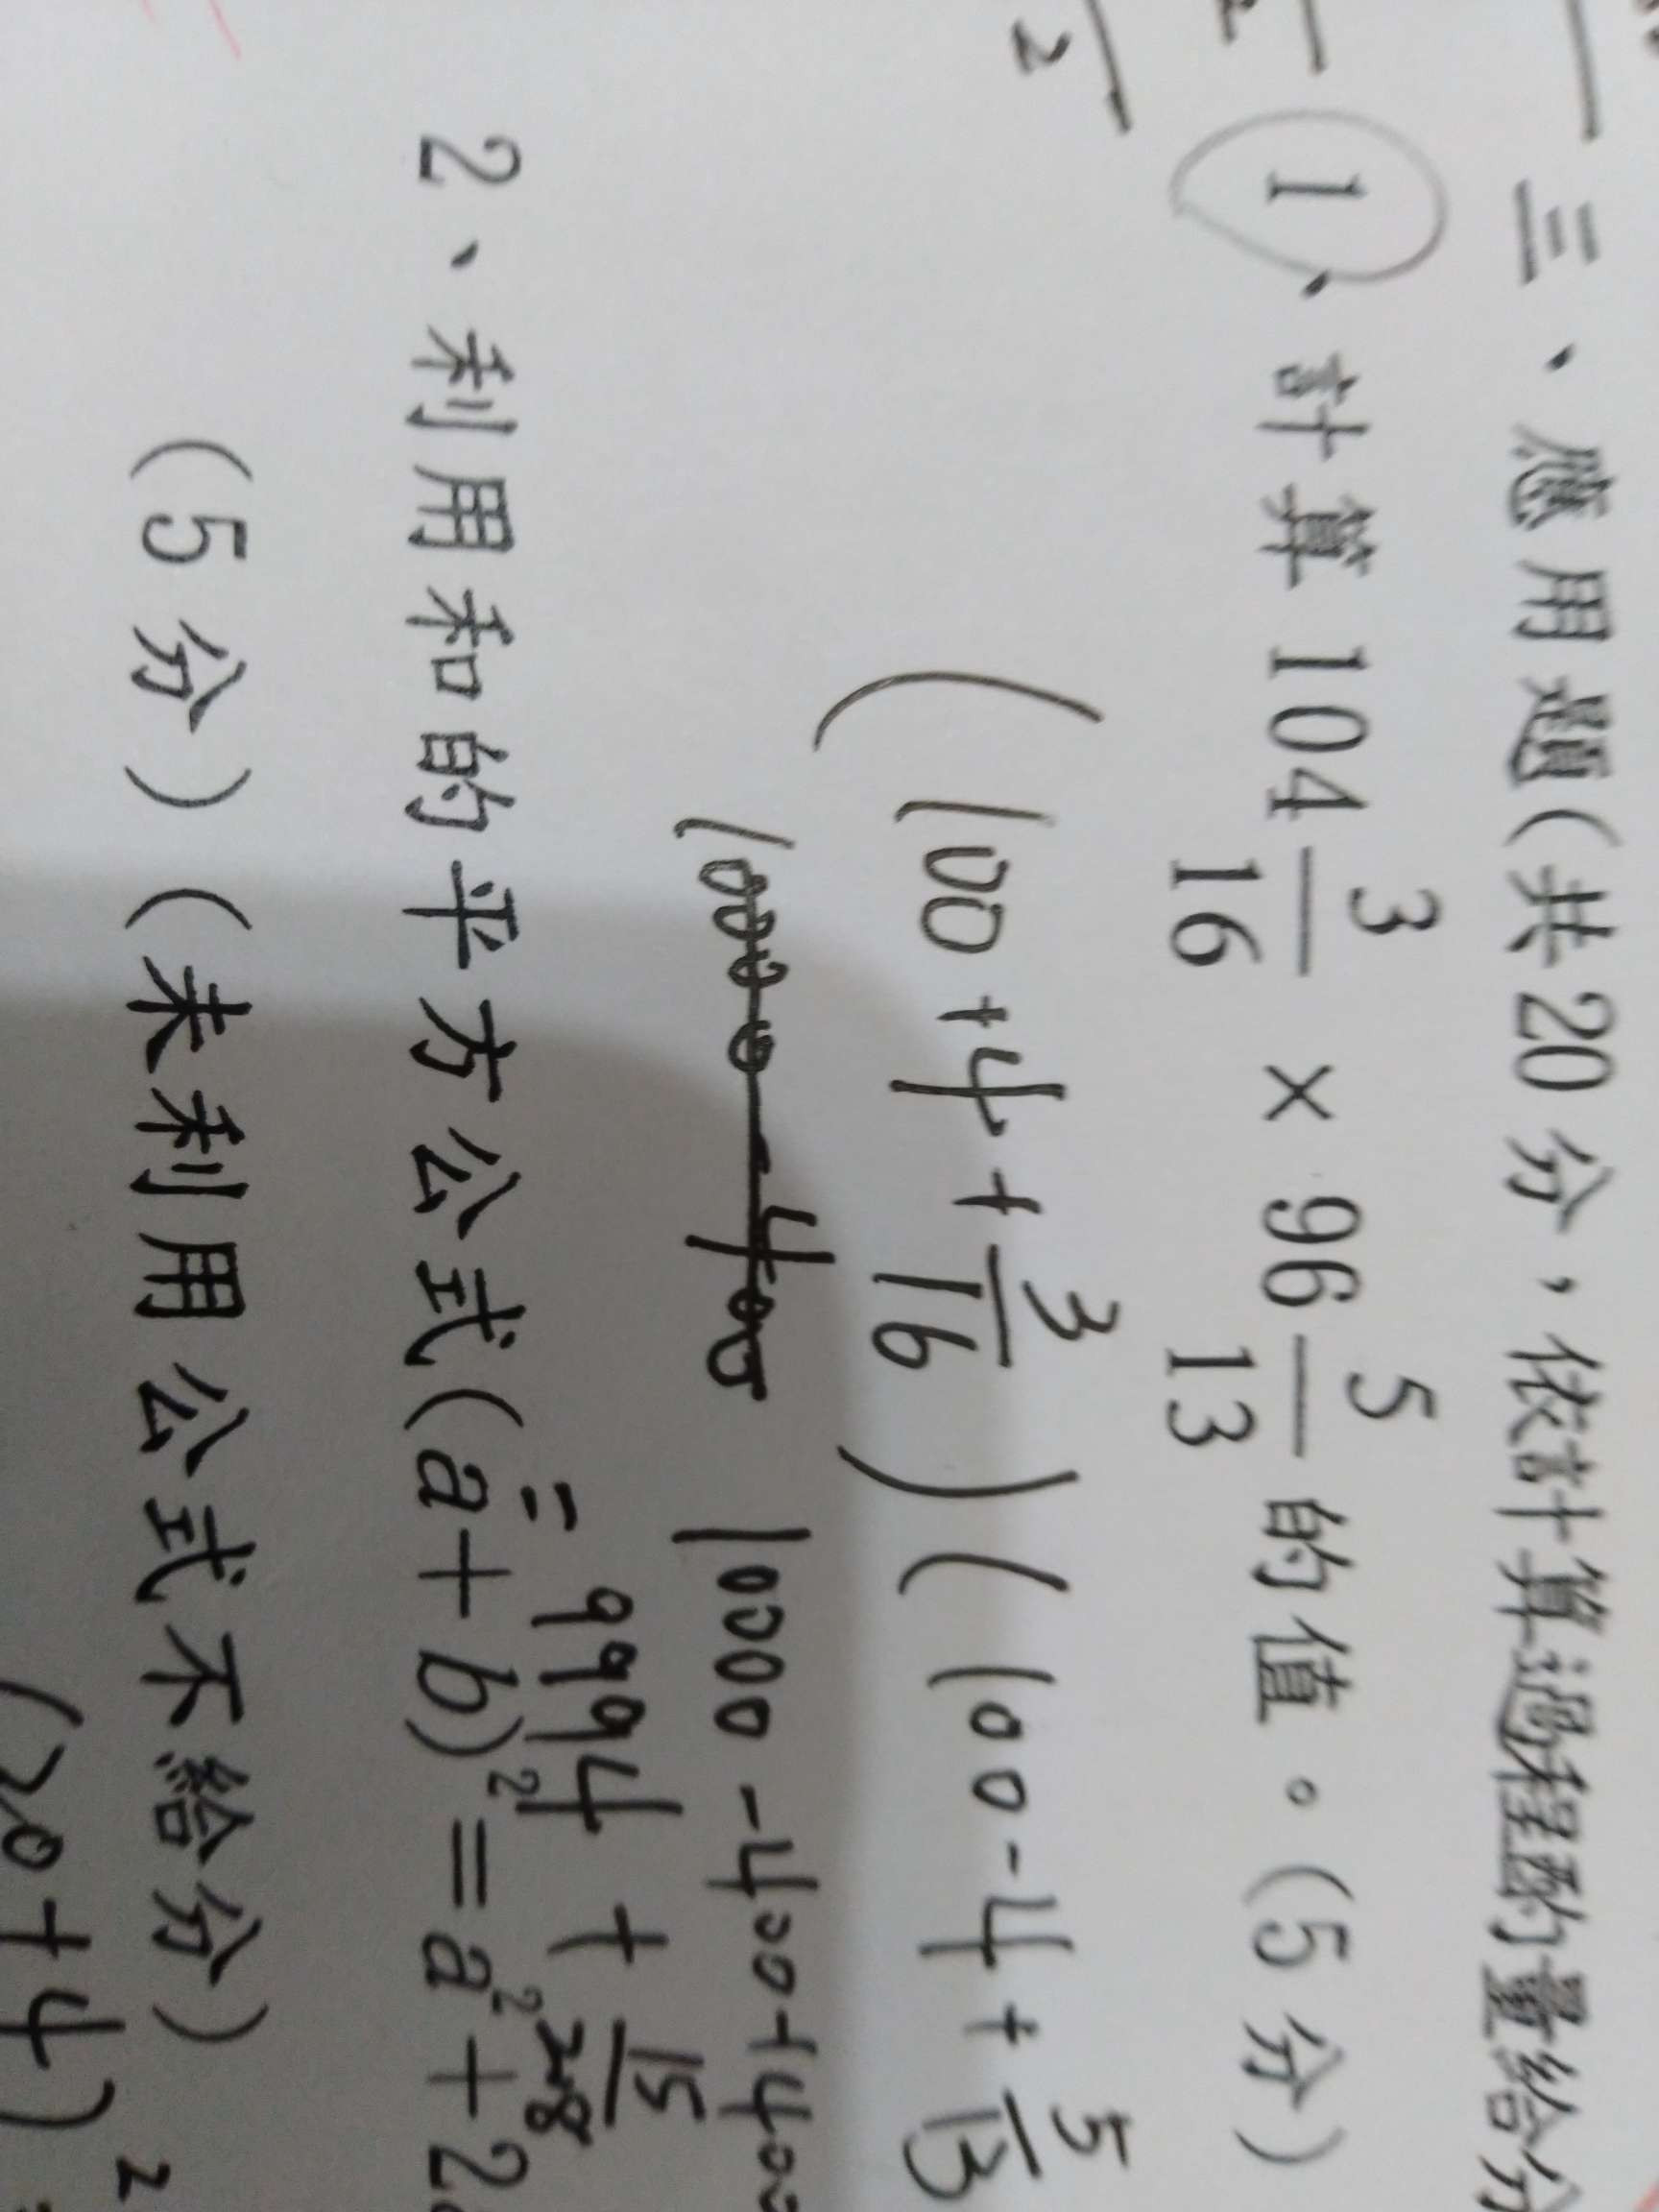 三、應用題(共20分，依計算過程酌量給分
1、計算 104 3/16 × 96 5/13 的值。(5分)
(100+4+3/16)(100-4+5/13)
10000-400+400
=9994+15/208
2、利用和的平方公式(a+b)²=a²+2
(5分)(未利用公式不給分)
(20+4)²